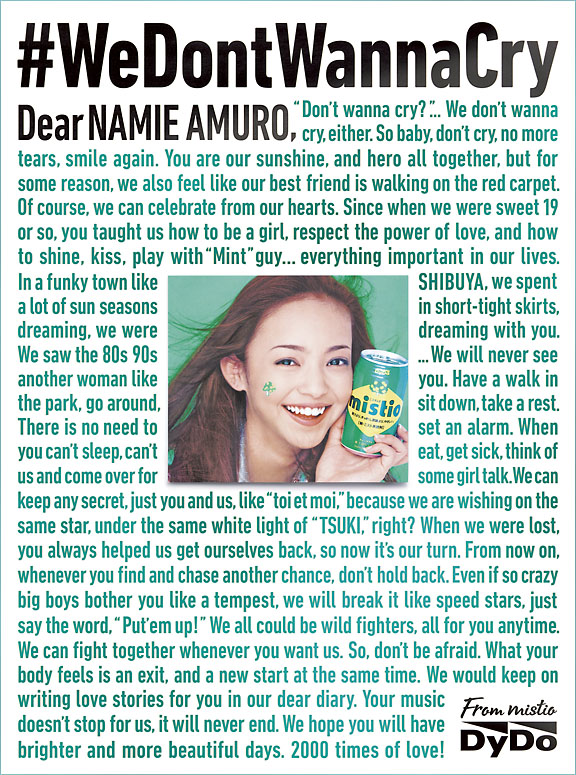 #WeDontWannaCry
Dear NAMIE AMURO, “Don’t wanna cry?”... We don’t wanna
cry, either. So baby, don’t cry, no more
tears, smile again. You are our sunshine, and hero all together, but for
some reason, we also feel like our best friend is walking on the red carpet.
Of course, we can celebrate from our hearts. Since when we were sweet 19
or so, you taught us how to be a girl, respect the power of love, and how
to shine, kiss, play with “Mint” guy... everything important in our lives.
In a funky town like SHIBUYA, we spent
a lot of sun seasons in short-tight skirts,
dreaming, we were dreaming with you.
We saw the 80s 90s ...We will never see
another woman like you. Have a walk in
the park, go around, sit down, take a rest.
There is no need to set an alarm. When
you can’t sleep, can’t eat, get sick, think of
us and come over for some girl talk. We can
keep any secret, just you and us, like “toi et moi,” because we are wishing on the
same star, under the same white light of “TSUKI,” right? When we were lost,
you always helped us get ourselves back, so now it’s our turn. From now on,
whenever you find and chase another chance, don’t hold back. Even if so crazy
big boys bother you like a tempest, we will break it like speed stars, just
say the word, “Put’em up!” We all could be wild fighters, all for you anytime.
We can fight together whenever you want us. So, don’t be afraid. What your
body feels is an exit, and a new start at the same time. We would keep on
writing love stories for you in our dear diary. Your music
doesn’t stop for us, it will never end. We hope you will have
brighter and more beautiful days. 2000 times of love!
mistio
From mistio
DyDo